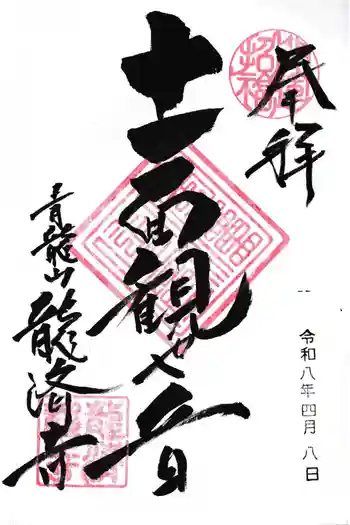 奉拝
令和八年四月八日
十一面観世音
青龍山 龍済寺